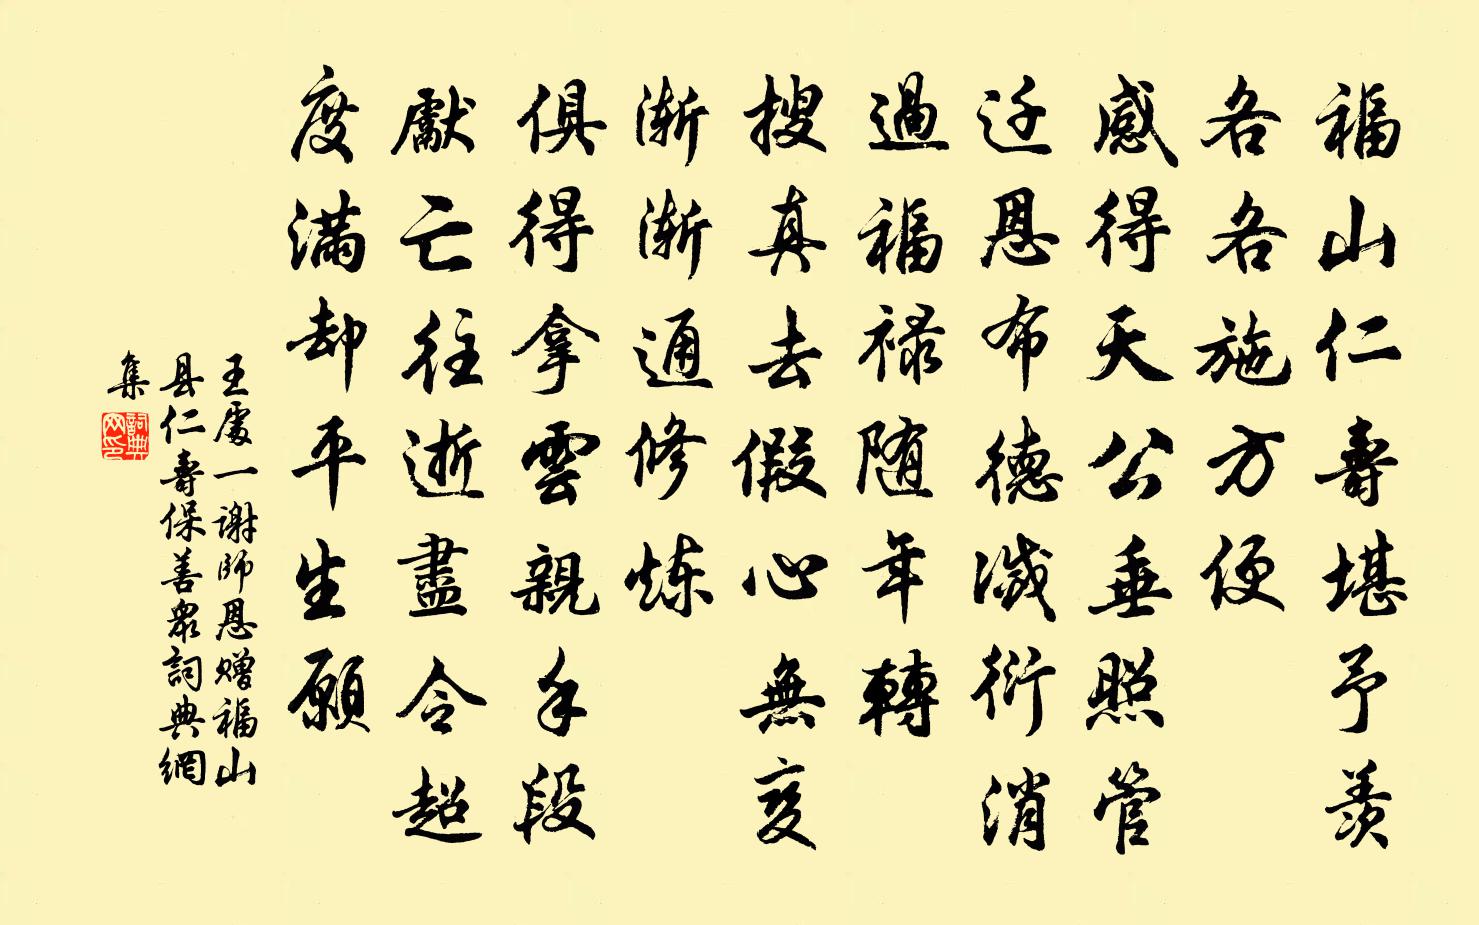 福山仁壽堪予羨
各各施方便
感得天公垂照管
迁恩布德滅衍消
過福禄随年轉
搜真去假心無变
漸漸通修炼
俱得拿雲親手段
獻亡往逝盡令超
度滿却平生願
王處一谢師恩赠福山
县仁壽保善衆詞典網
集
詞典网印